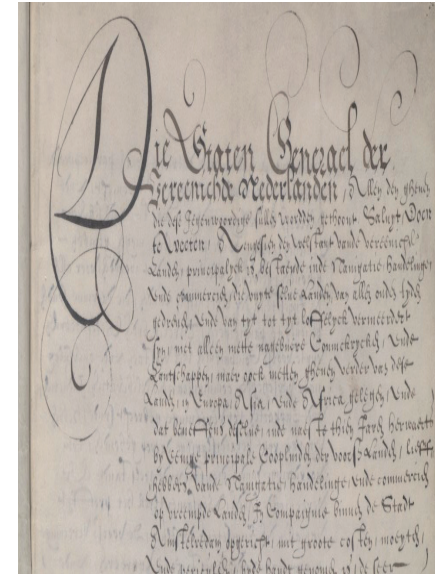 Die Staten Generael der
Vereenichde Nederlanden, Allen den ghenen
die dese Jegenwoordige sullen werdden gethoont Saluyt, Doen
te weeten, Alzoe den welstant vande vereenichde
Landen, principalyck is bestaende inde Navigatie handelinge,
ende commercie, die vuyte selve Landen van allen ouden tyden
gedreven, ende van tyt tot tyt loffelyck vermeerdert
syn, niet alleen mette nagebuere Conincrycken, ende
Lantschappen, maer oock metten ghenen verder van dese
Landen, in Europa, Asia, ende Africa gelegen, ende
dat beneffens deselve, inde naeste thien Jaren herwaerts
by eenige principale Coopluyden der voorsz Landen, lieff
hebbers vande Navigatie handelinge, ende commercien
op vreemde Landen, In Compaignie binnen de Stadt
Amstelredam opgericht, met groote costen, moeyten,
ende periculen, byde handt genomen is, de seer